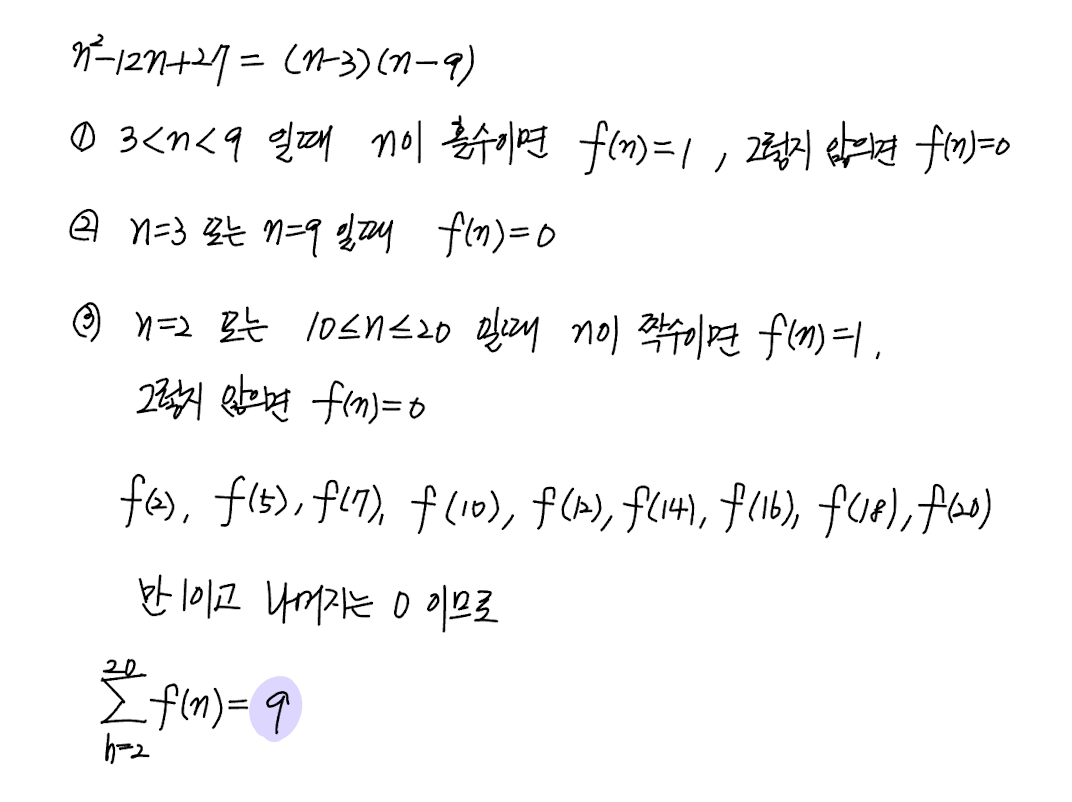 n²-12n+27 = (n-3)(n-9)
① 3<n<9 일때 n이 홀수이면 f(n)=1 , 그렇지 않으면 f(n)=0
② n=3 또는 n=9 일때 f(n)=0
③ n=2 또는 10≤n≤20 일때 n이 짝수이면 f(n)=1,
그렇지 않으면 f(n)=0
f(2), f(5), f(7), f(10), f(12), f(14), f(16), f(18), f(20)
만 1이고 나머지는 0 이므로
20
∑ f(n)= 9
n=2